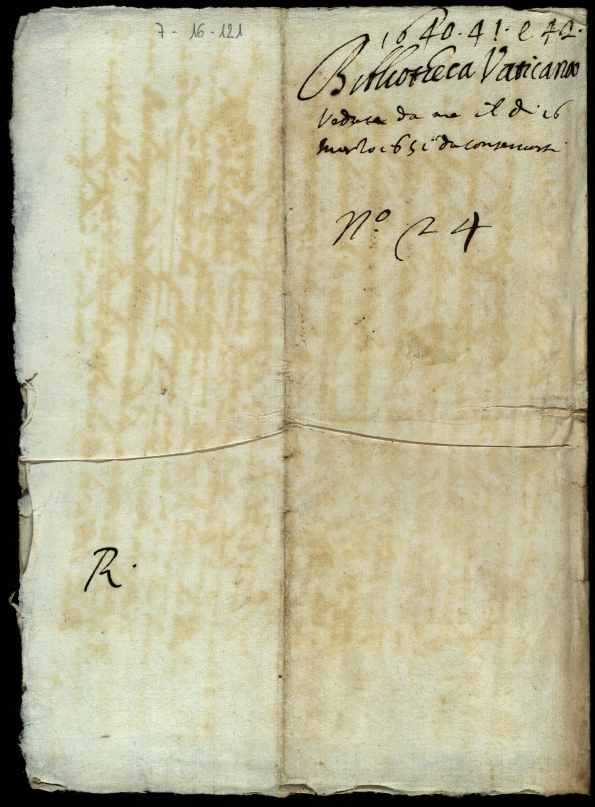 7-16-121
1640. 41. e 42.
Bibliotheca Vaticana
Vedute da me il di 16
Marzo 1651 da conservarsi
N.º 24
R.